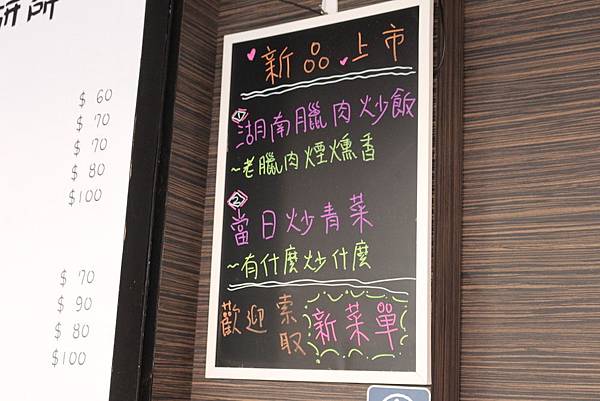 研所
$60
$70
$70
$80
$100
$70
$90
$80
$100
新品上市
1. 湖南臘肉炒飯
~老臘肉煙燻香
2. 當日炒青菜
~有什麼炒什麼
歡迎索取新菜單